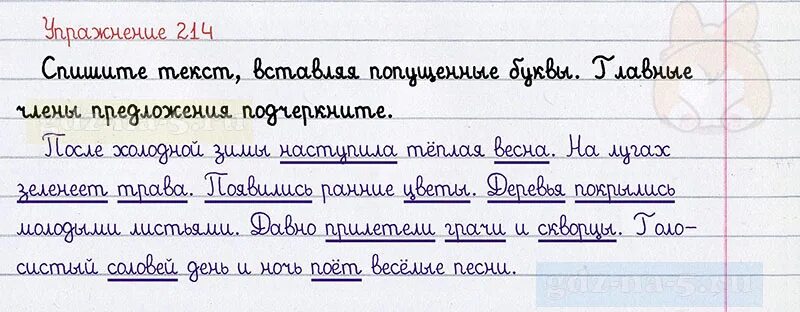 Упражнение 214
Спишите текст, вставляя попущенные буквы. Главные
члены предложения подчеркните.
После холодной зимы наступила тёплая весна. На лугах
зеленеет трава. Появились ранние цветы. Деревья покрылись
молодыми листьями. Давно прилетели грачи и скворцы. Голо-
систый соловей день и ночь поёт весёлые песни.
gdz-na-5.ru
gdz-na-5.ru